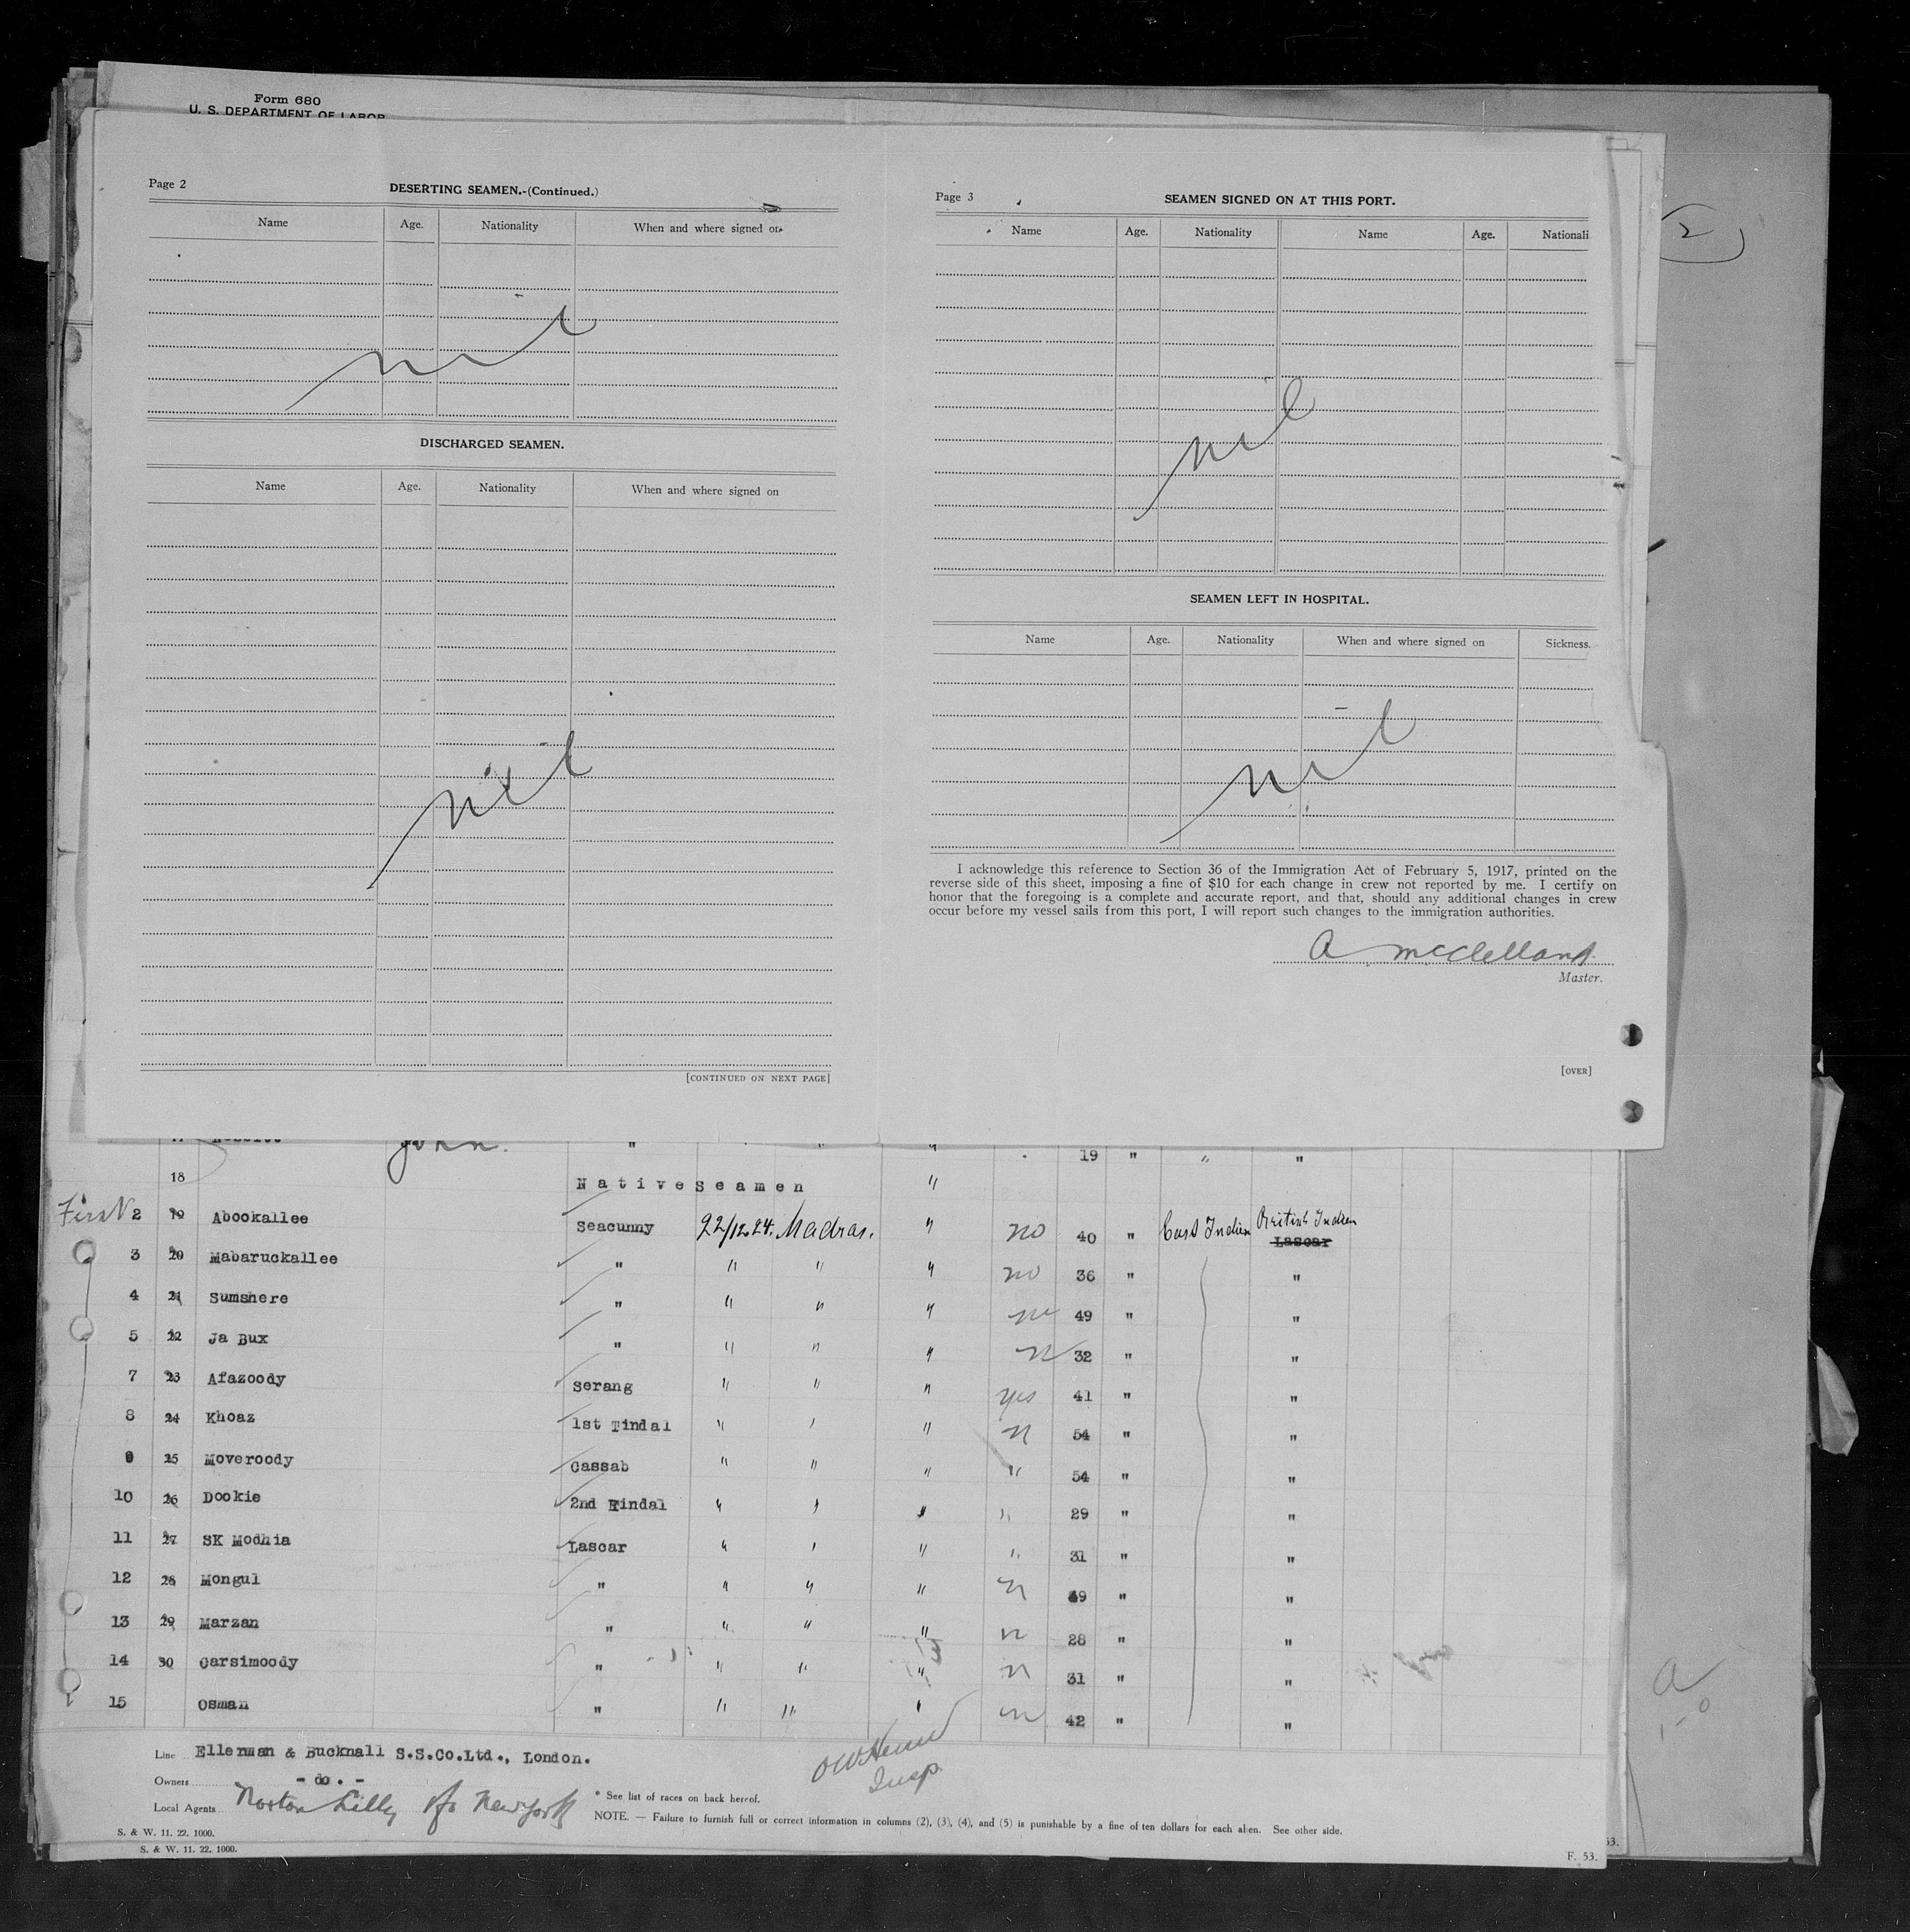 Form 680
U. S. DEPARTMENT OF LABOR
Page 2
DESERTING SEAMEN.-(Continued.)
Name Age. Nationality When and where signed on
nil
DISCHARGED SEAMEN.
Name Age. Nationality When and where signed on
nil
[CONTINUED ON NEXT PAGE]
Page 3
SEAMEN SIGNED ON AT THIS PORT.
Name Age. Nationality Name Age. Nationali
nil
SEAMEN LEFT IN HOSPITAL.
Name Age. Nationality When and where signed on Sickness.
nil
I acknowledge this reference to Section 36 of the Immigration Act of February 5, 1917, printed on the
reverse side of this sheet, imposing a fine of $10 for each change in crew not reported by me. I certify on
honor that the foregoing is a complete and accurate report, and that, should any additional changes in crew
occur before my vessel sails from this port, I will report such changes to the immigration authorities.
A McClelland
Master.
[OVER]
2
John. " " 19 " " "
18 Native Seamen "
First N 2 19 Abookallee Seacunny 22/12.24. Madras. " no 40 " East Indian British Indian Lascar
3 20 Mabaruckallee " " " " no 36 " "
4 21 Sumshere " " " " no 49 " "
5 22 Ja Bux " " " " n 32 " "
7 23 Afazoody Serang " " " yes 41 " "
8 24 Khoaz 1st Tindal " " " n 54 " "
9 25 Moveroody Cassab " " " " 54 " "
10 26 Dookie 2nd Tindal " " " " 29 " "
11 27 SK Modhia Lascar " " " " 31 " "
12 28 Mongul " " " " n 49 " "
13 29 Marzan " " " " n 28 " "
14 30 Carsimoody " " " " n 31 " "
15 Osman " " " " n 42 " "
Line Ellerman & Bucknall S.S.Co.Ltd., London.
Owners - do. -
Local Agents Norton Lilly of New York
Insp
* See list of races on back hereof.
NOTE. — Failure to furnish full or correct information in columns (2), (3), (4), and (5) is punishable by a fine of ten dollars for each alien. See other side.
S. & W. 11. 22. 1000.
S. & W. 11. 22. 1000.
53.
F. 53.